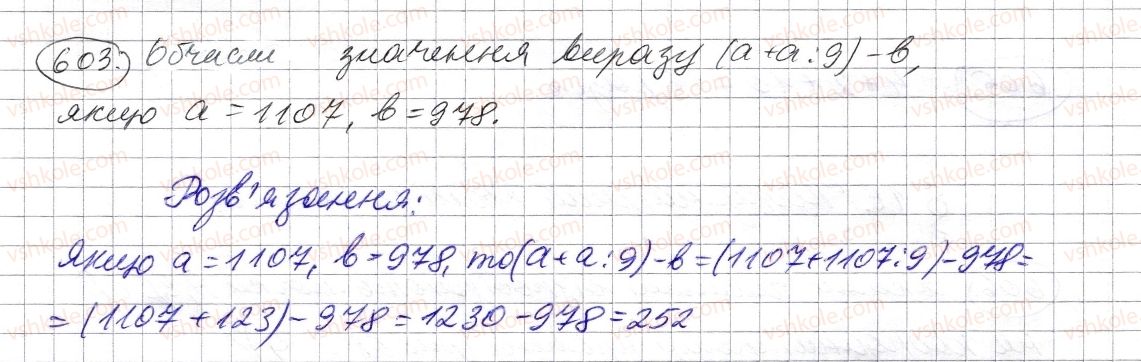 603. Обчисли значення виразу (a+a:9)-в,
якщо a=1107, в=978.
Розв'язання:
Якщо a=1107, в=978, то (a+a:9)-в=(1107+1107:9)-978=
=(1107+123)-978=1230-978=252